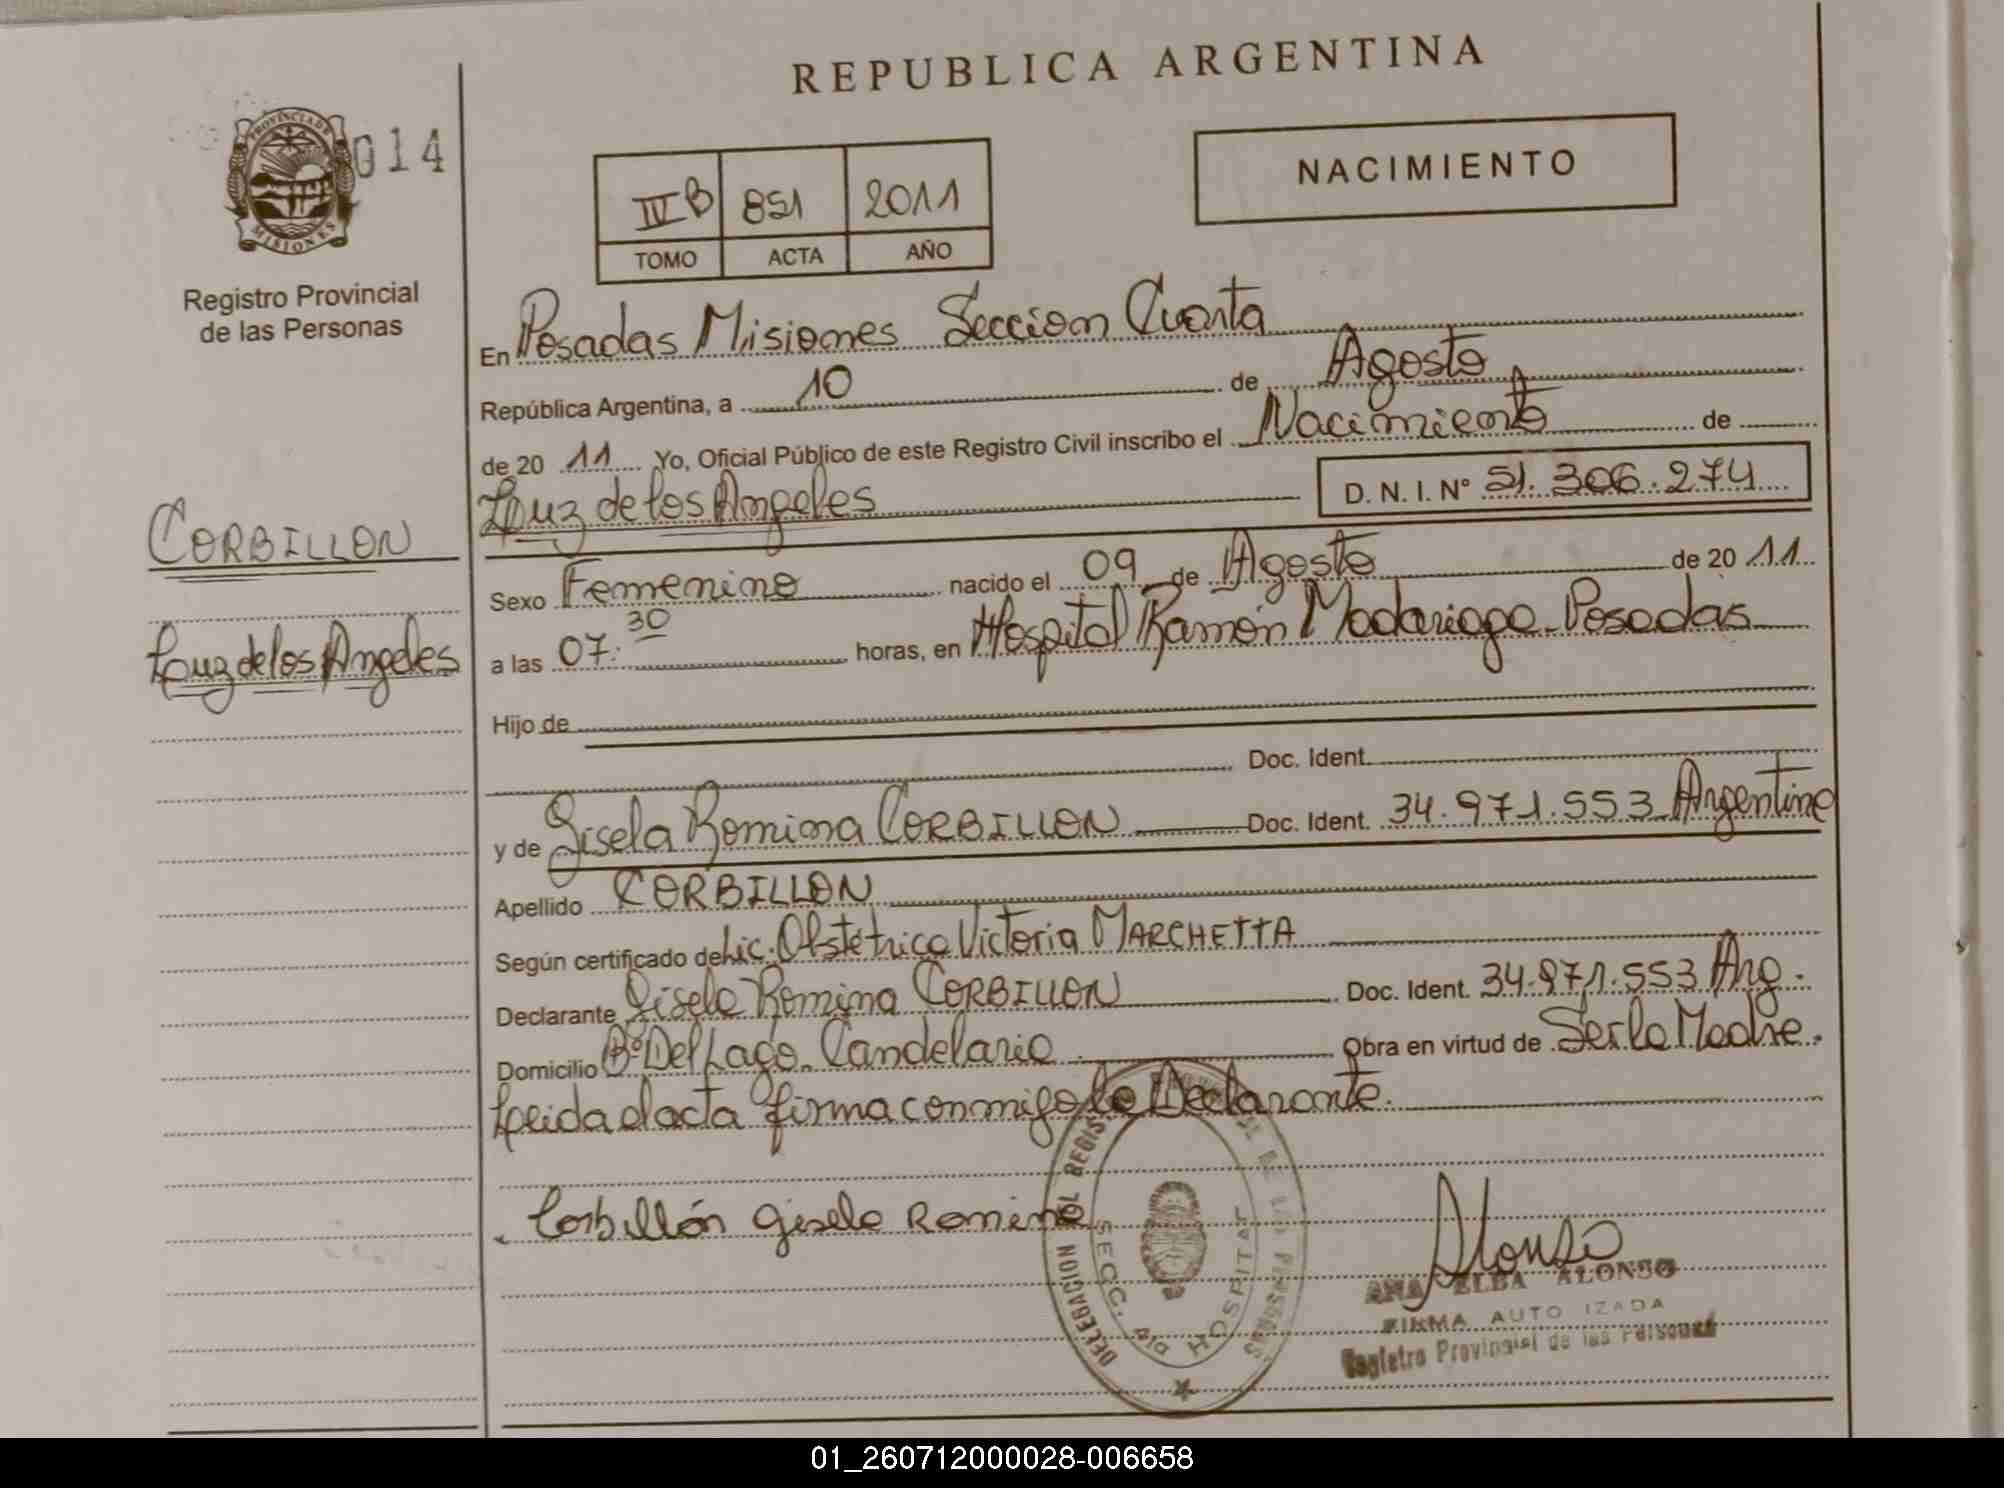 REPUBLICA ARGENTINA
PROVINCIA DE MISIONES
014
Registro Provincial
de las Personas
III B 851 2011
TOMO ACTA AÑO
NACIMIENTO
En Posadas Misiones Seccion Cuarta
República Argentina, a 10 de Agosto
de 20 11 Yo, Oficial Público de este Registro Civil inscribo el Nacimiento de
Luz de los Angeles D. N. I. Nº 51.306.274
CORBILLON
Luz de los Angeles
Sexo Femenino nacido el 09 de Agosto de 20 11
a las 07:30 horas, en Hospital Ramón Madariaga - Posadas
Hijo de
Doc. Ident.
y de Gisela Romina CORBILLON Doc. Ident. 34.971.553 Argentina
Apellido CORBILLON
Según certificado de Lic. Obstétrica Victoria MARCHETTA
Declarante Gisela Romina CORBILLON Doc. Ident. 34.971.553 Arg.
Domicilio Bº Del Lago. Candelaria Obra en virtud de Ser la Madre.
Leida el acta firma conmigo la Declarante.
Corbillón Gisela Romina
DELEGACION DEL REGISTRO DE LAS PERSONAS
SECC. 4ta HOSPITAL
Alonso
ANA ELBA ALONSO
FIRMA AUTO IZADA
Registro Provincial de las Personas
01_260712000028-006658